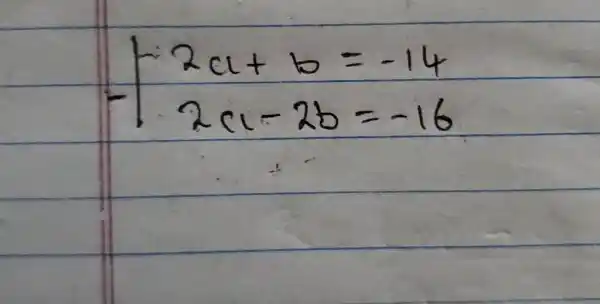 2a + b = -14
- 2a - 2b = -16